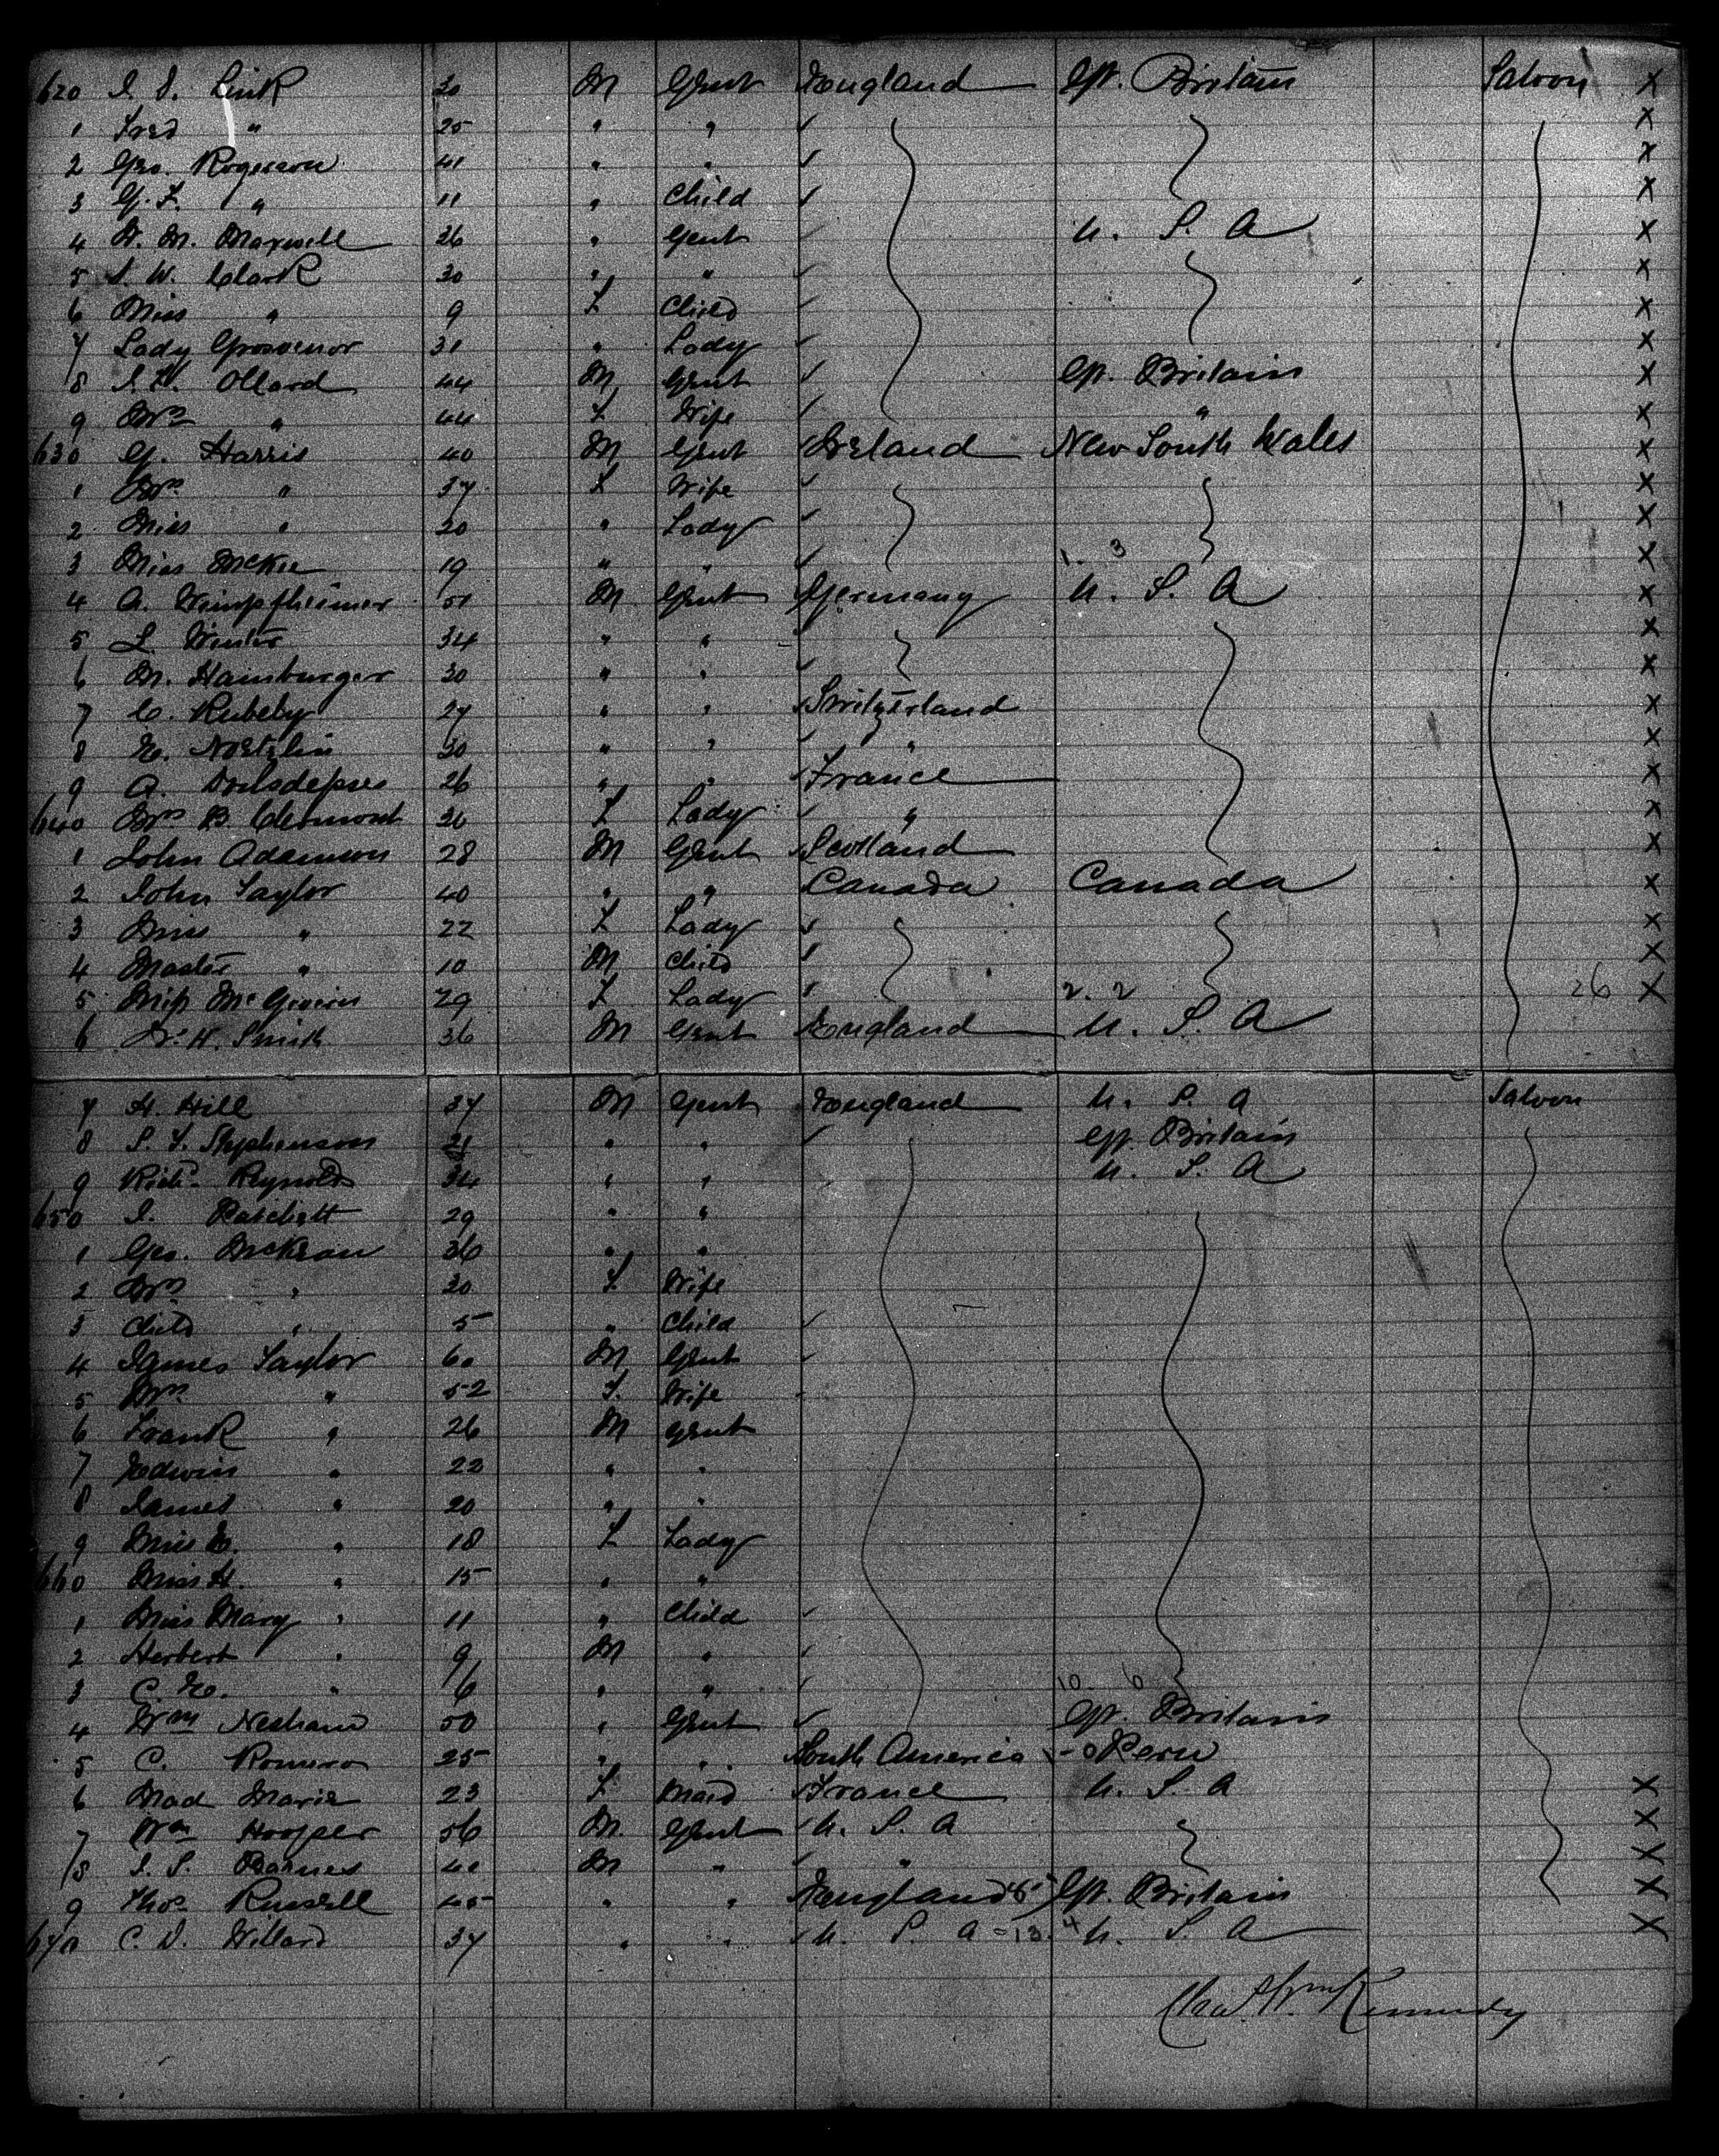 620 J. J. Link 30 M Gent England Gt. Britain Saloon X
1 Fred " 25 " " ✓ X
2 Geo. Rogerson 41 " " ✓ X
3 G. F. " 11 " Child ✓ X
4 M. Maxwell 26 " Gent ✓ U. S. A X
5 W. Clark 30 " " ✓ X
6 Miss " 9 F Child ✓ X
7 Lady Grosvenor 31 " Lady ✓ X
8 Ollard 44 M Gent ✓ Gt. Britain X
9 Mrs " 44 F Wife ✓ " X
630 G. Harris 40 M Gent Ireland New South Wales X
1 Mrs " 37 F Wife ✓ X
2 Miss " 20 " Lady ✓ X
3 Miss McKee 19 " " ✓ 1. 3 X
4 A. Wimpfheimer 51 M Gent Germany U. S. A X
5 L. Winter 34 " " X
6 M. Hamburger 30 " " ✓ X
7 C. Rubely 27 " " Switzerland X
8 E. Noetzlin 30 " " ✓ " X
9 A. 26 " " France X
640 Mrs B Clermont 26 F Lady ✓ " X
1 John Adamson 28 M Gent Scotland X
2 John Taylor 40 " " Canada Canada X
3 Miss " 22 F Lady ✓ X
4 Master " 10 M Child ✓ X
5 Miss McGivern 29 F Lady ✓ 2. 2 26 X
6 H. Smith 36 M Gent England U. S. A
7 H. Hill 37 M Gent England U. S. A Saloon
8 S. F. Stephenson 21 " " ✓ Gt. Britain
9 Richd Reynolds 34 " " U. S. A
650 J. Patchett 29 " "
1 Geo. McKean 36 " "
2 Mrs " 30 F Wife
3 Child " 5 " Child ✓
4 James Taylor 60 M Gent ✓
5 Mrs " 52 F. Wife
6 Frank " 26 M Gent
7 Edwin " 22 " "
8 James " 20 " "
9 Miss E. " 18 F Lady
660 Miss H. " 15 " "
1 Miss Mary " 11 " Child ✓
2 Herbert " 9 M " ✓
3 C. E. " 6 " " ✓ 10. 6
4 Wm Nesham 50 " Gent ✓ Gt. Britain
5 C. Romero 25 " " South America Peru
6 Mad Marie 23 F Maid France U. S. A X
7 Wm Hooper 56 M. Gent U. S. A X
8 J. S. Barnes 40 M " ✓ " X
9 Thos Russell 45 " " England Gt. Britain X
670 C. D. Willard 37 " " U. S. A - 13. 4 U. S. A X
Chas. Wm Kennedy